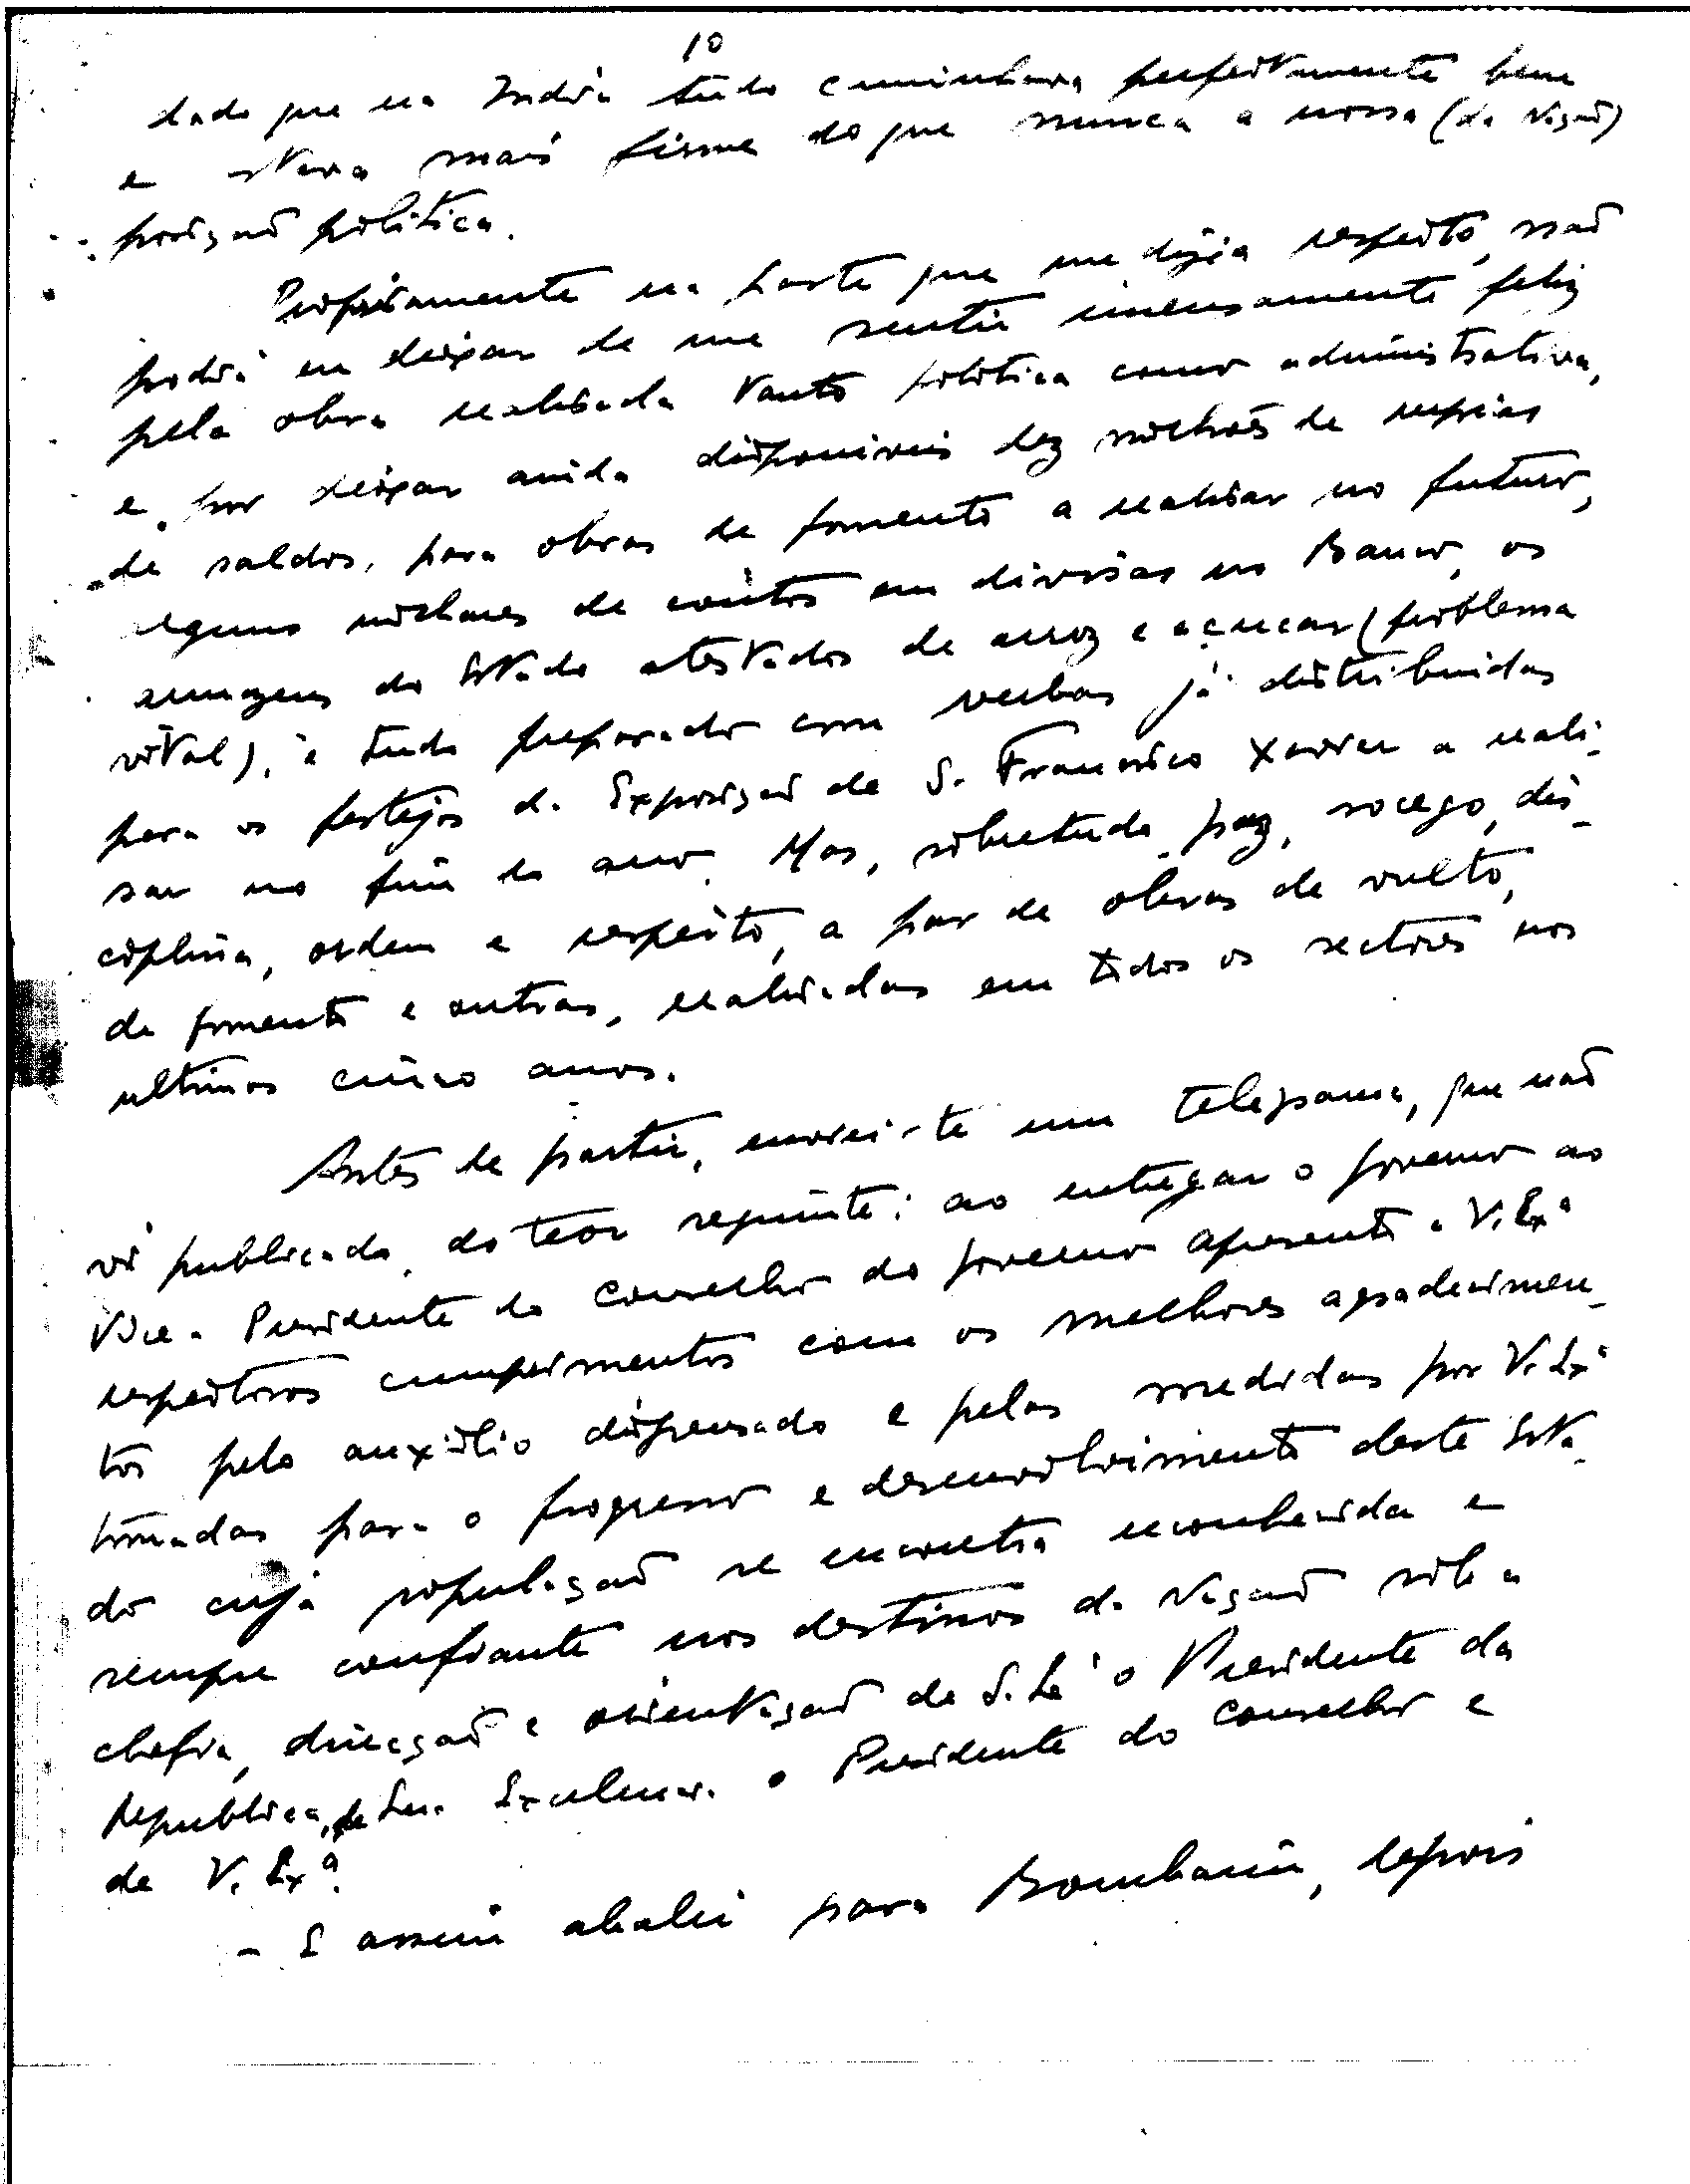 10
dado que na India tudo caminhava perfeitamente bem
e estava mais firme do que nunca a nossa (da Nação)
posição politica.
Propriamente na parte que me dizia respeito, não
podia eu deixar de me sentir imensamente feliz
pela obra realisada tanto politica como administrativa,
e por deixar ainda disponiveis dez milhões de rupias
de saldos, para obras de fomento a realisar no futuro,
alguns milhares de contos em divisas no Banco, os
armazens do Estado atestados de arroz e açucar (problema
vital), e tudo preparado com verbas já distribuidas
para os festejos da Exposição de S. Francisco Xavier a reali-
sar no fim do ano. Mas, sobretudo, paz, socego, dis-
ciplina, ordem e respeito, a par de obras de vulto,
de fomento e outras, realisadas em todos os sectores nos
ultimos cinco anos.
Antes de partir, enviei-te um telegrama, que não
vi publicado, do teor seguinte: ao entregar o governo ao
Vice-Presidente do Conselho do governo apresento a V. Exª
respeitosos cumprimentos com os melhores agradecimen-
tos pelo auxilio dispensado e pelas medidas por V. Exª
tomadas para o progresso e desenvolvimento deste Esta-
do cuja população se encontra reconhecida e
sempre confiante nos destinos da Nação sob a
chefia, direcção e orientação de S. Exª o Presidente da
Republica, de Sua Excelencia o Presidente do Conselho e
de V. Exª.
- E assim abalei para Bombaim, depois